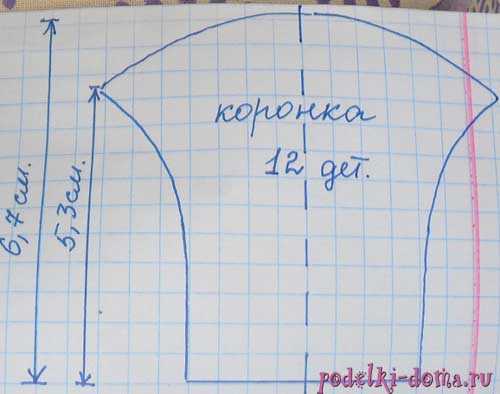 6,7 см.
5,3 см.
коронка
12 дет.
podelki-doma.ru